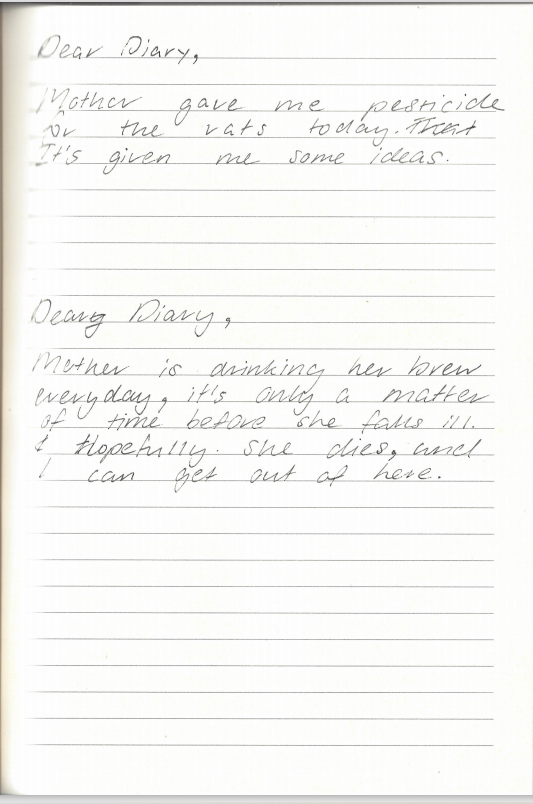 Dear Diary,
Mother gave me pesticide
for the rats today. That
It's given me some ideas.
Deary Diary,
Mother is drinking her brew
everyday, it's only a matter
of time before she falls ill.
I Hopefully. she dies, and
I can get out of here.